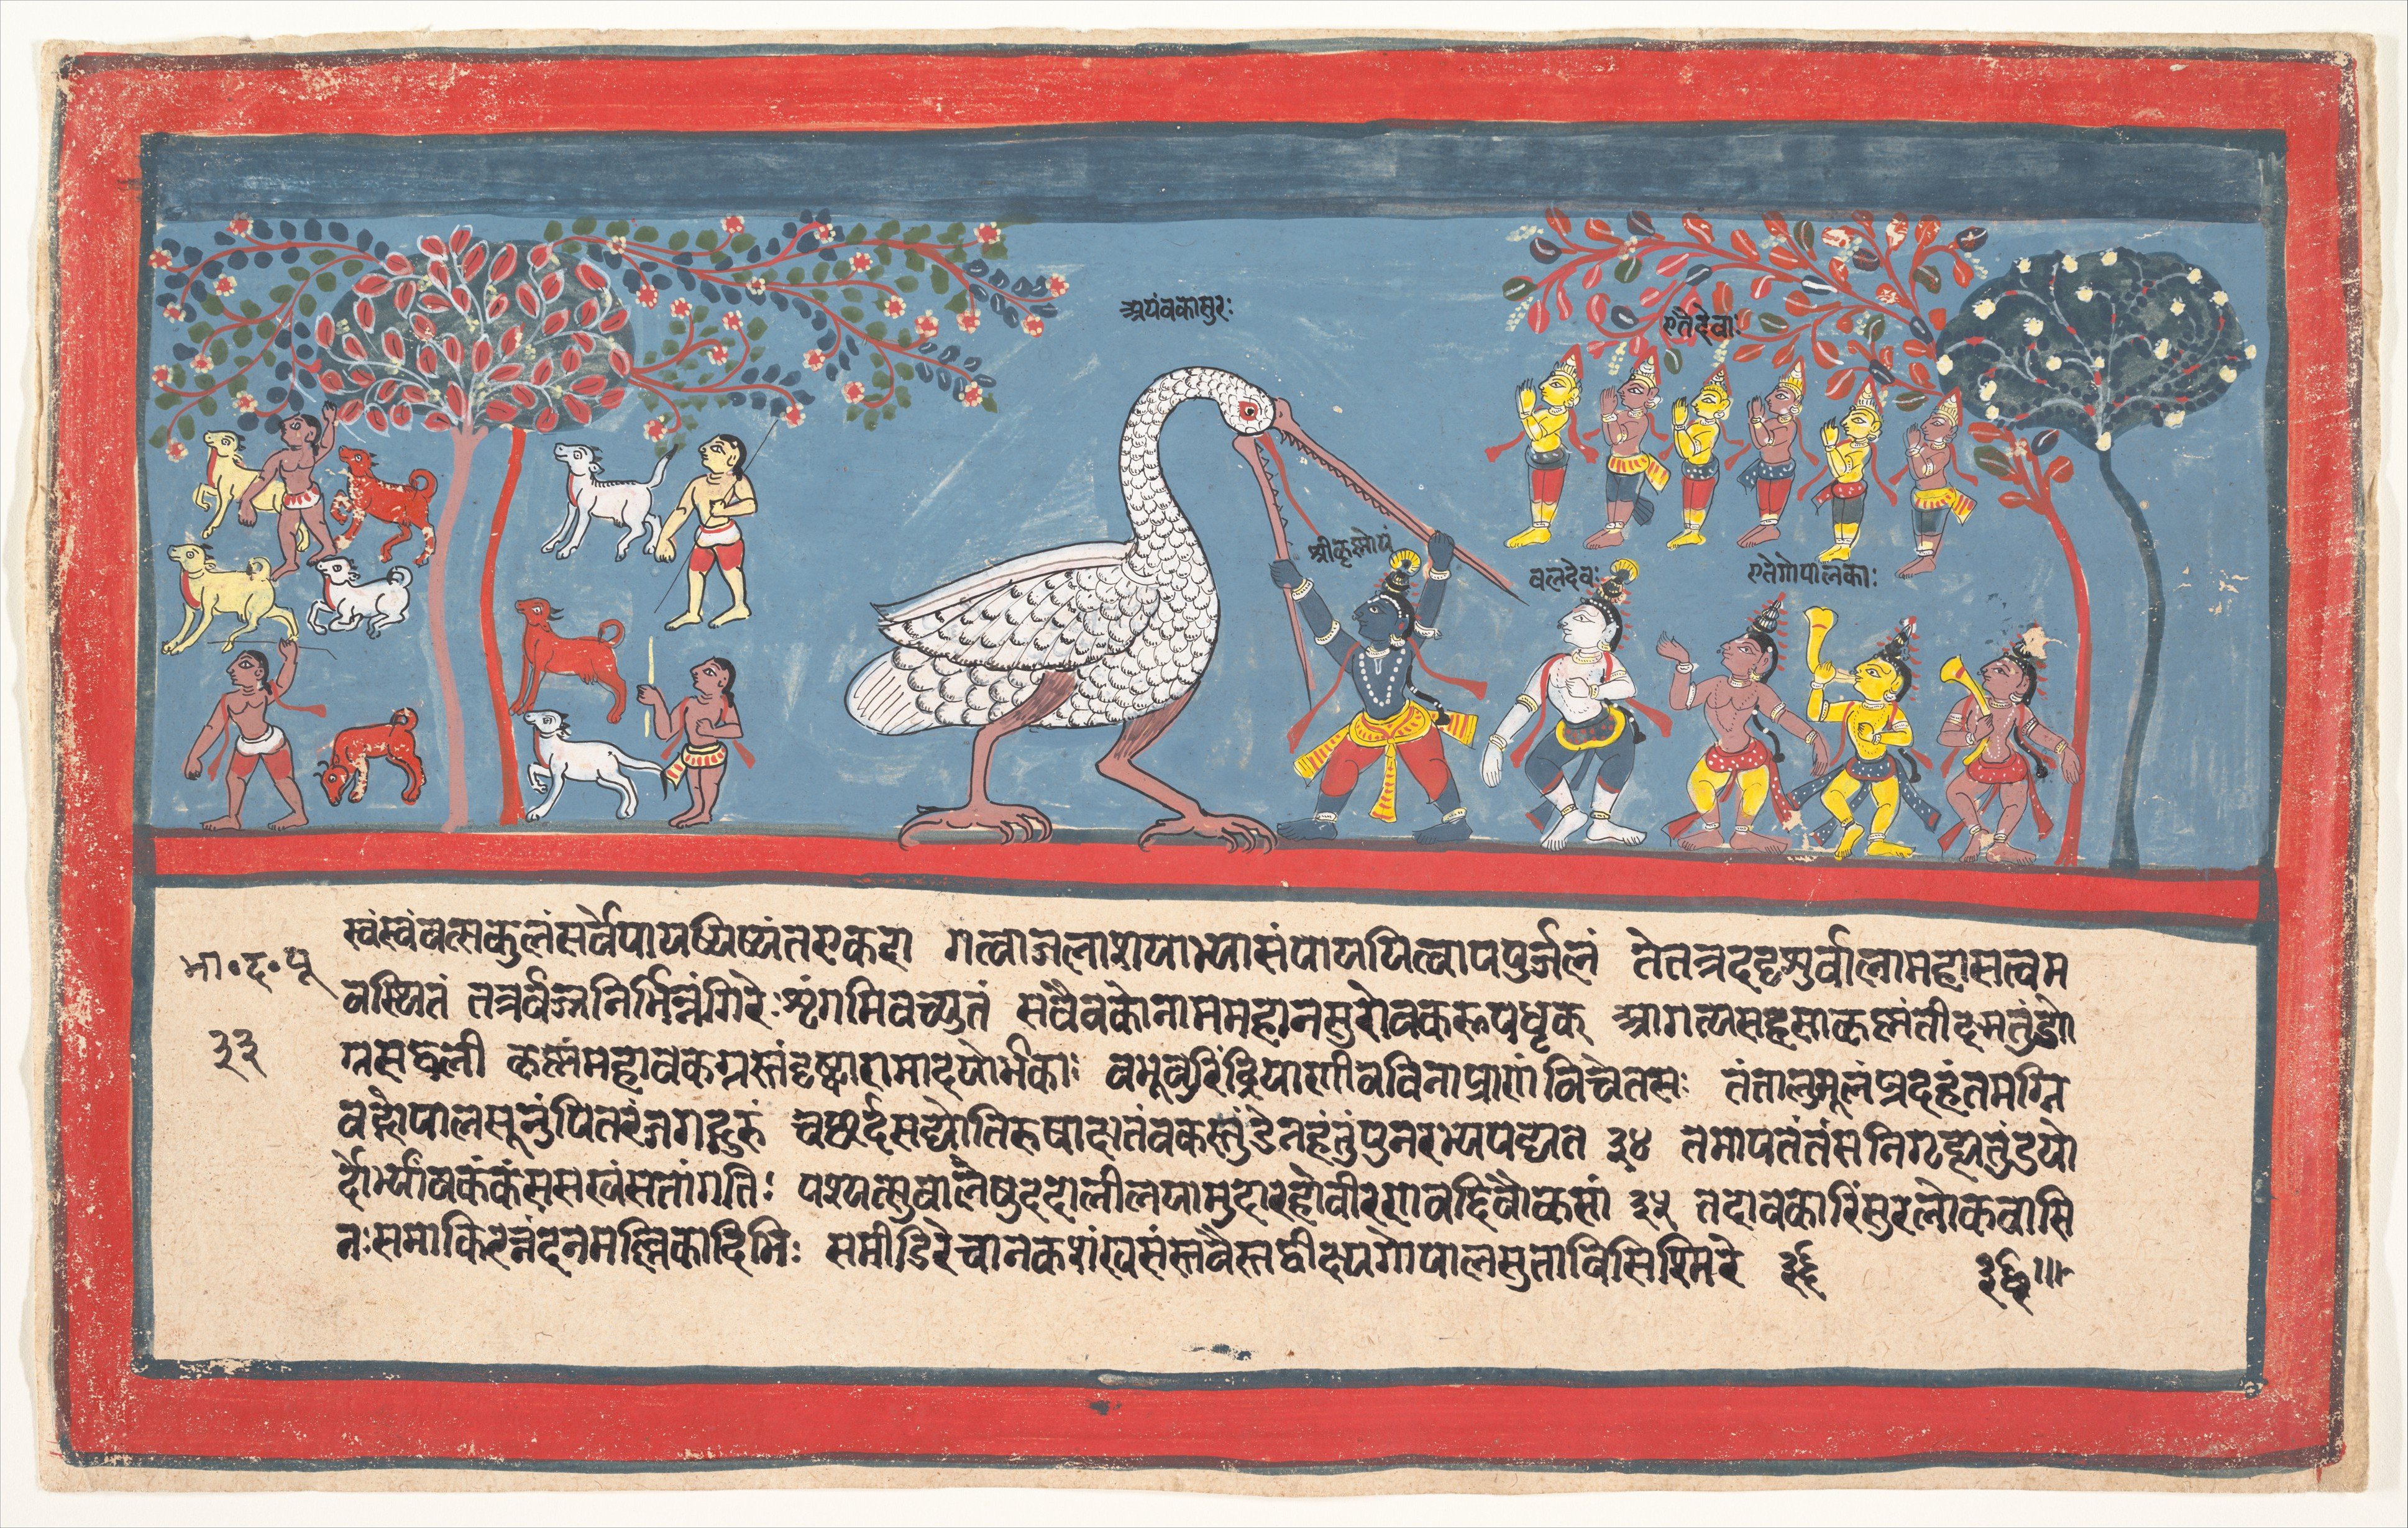 अयंवकासुरः
एतेदेवाः
श्रीकृष्णोयं
वलदेवः
एतेगोपालकाः
स्वंस्वंवत्सकुलंसर्वेपाययिष्यंतएकदा गत्वाजलाशयाभ्यासंपाययित्वापपुर्जलं तेतत्रददृशुर्वालामहासत्वम
भा॰द॰पू
वस्थितं तत्रर्वज्रनिर्भिन्नंगिरेःशृंगमिवच्युतं सवैवकोनाममहानसुरोवकरूपधृक् आगत्यसहसाकृष्णंतीक्ष्णतुंडो
३३
ग्रसद्वली कृष्णंमहावकग्रस्तंदृष्ट्वारामादयोर्भकाः वभूवुरिंद्रियाणीवविनाप्राणंविचेतसः तंतालुमूलंप्रदहंतमग्नि
वद्गोपालसूनुंपितरंजगद्गुरुं चछर्दसद्योतिरुषादातंवकस्तुंडेनहंतुंपुनरभ्यपद्यत ३४ तमापतंतंसनिगृह्यतुंडयो
र्दोर्भ्यांवकंकंससखंसतांगतिः पश्यत्सुवालेषुददालीलयामुदारहोवीरणवद्दिवौकसां ३५ तदावकारिंसुरलोकवासि
नःसमाकिरन्नंदनमल्लिकादिभिः समीडिरेचानकशंखसंस्तवैस्तद्वीक्ष्यगोपालसुताविसिश्मिरे ३६